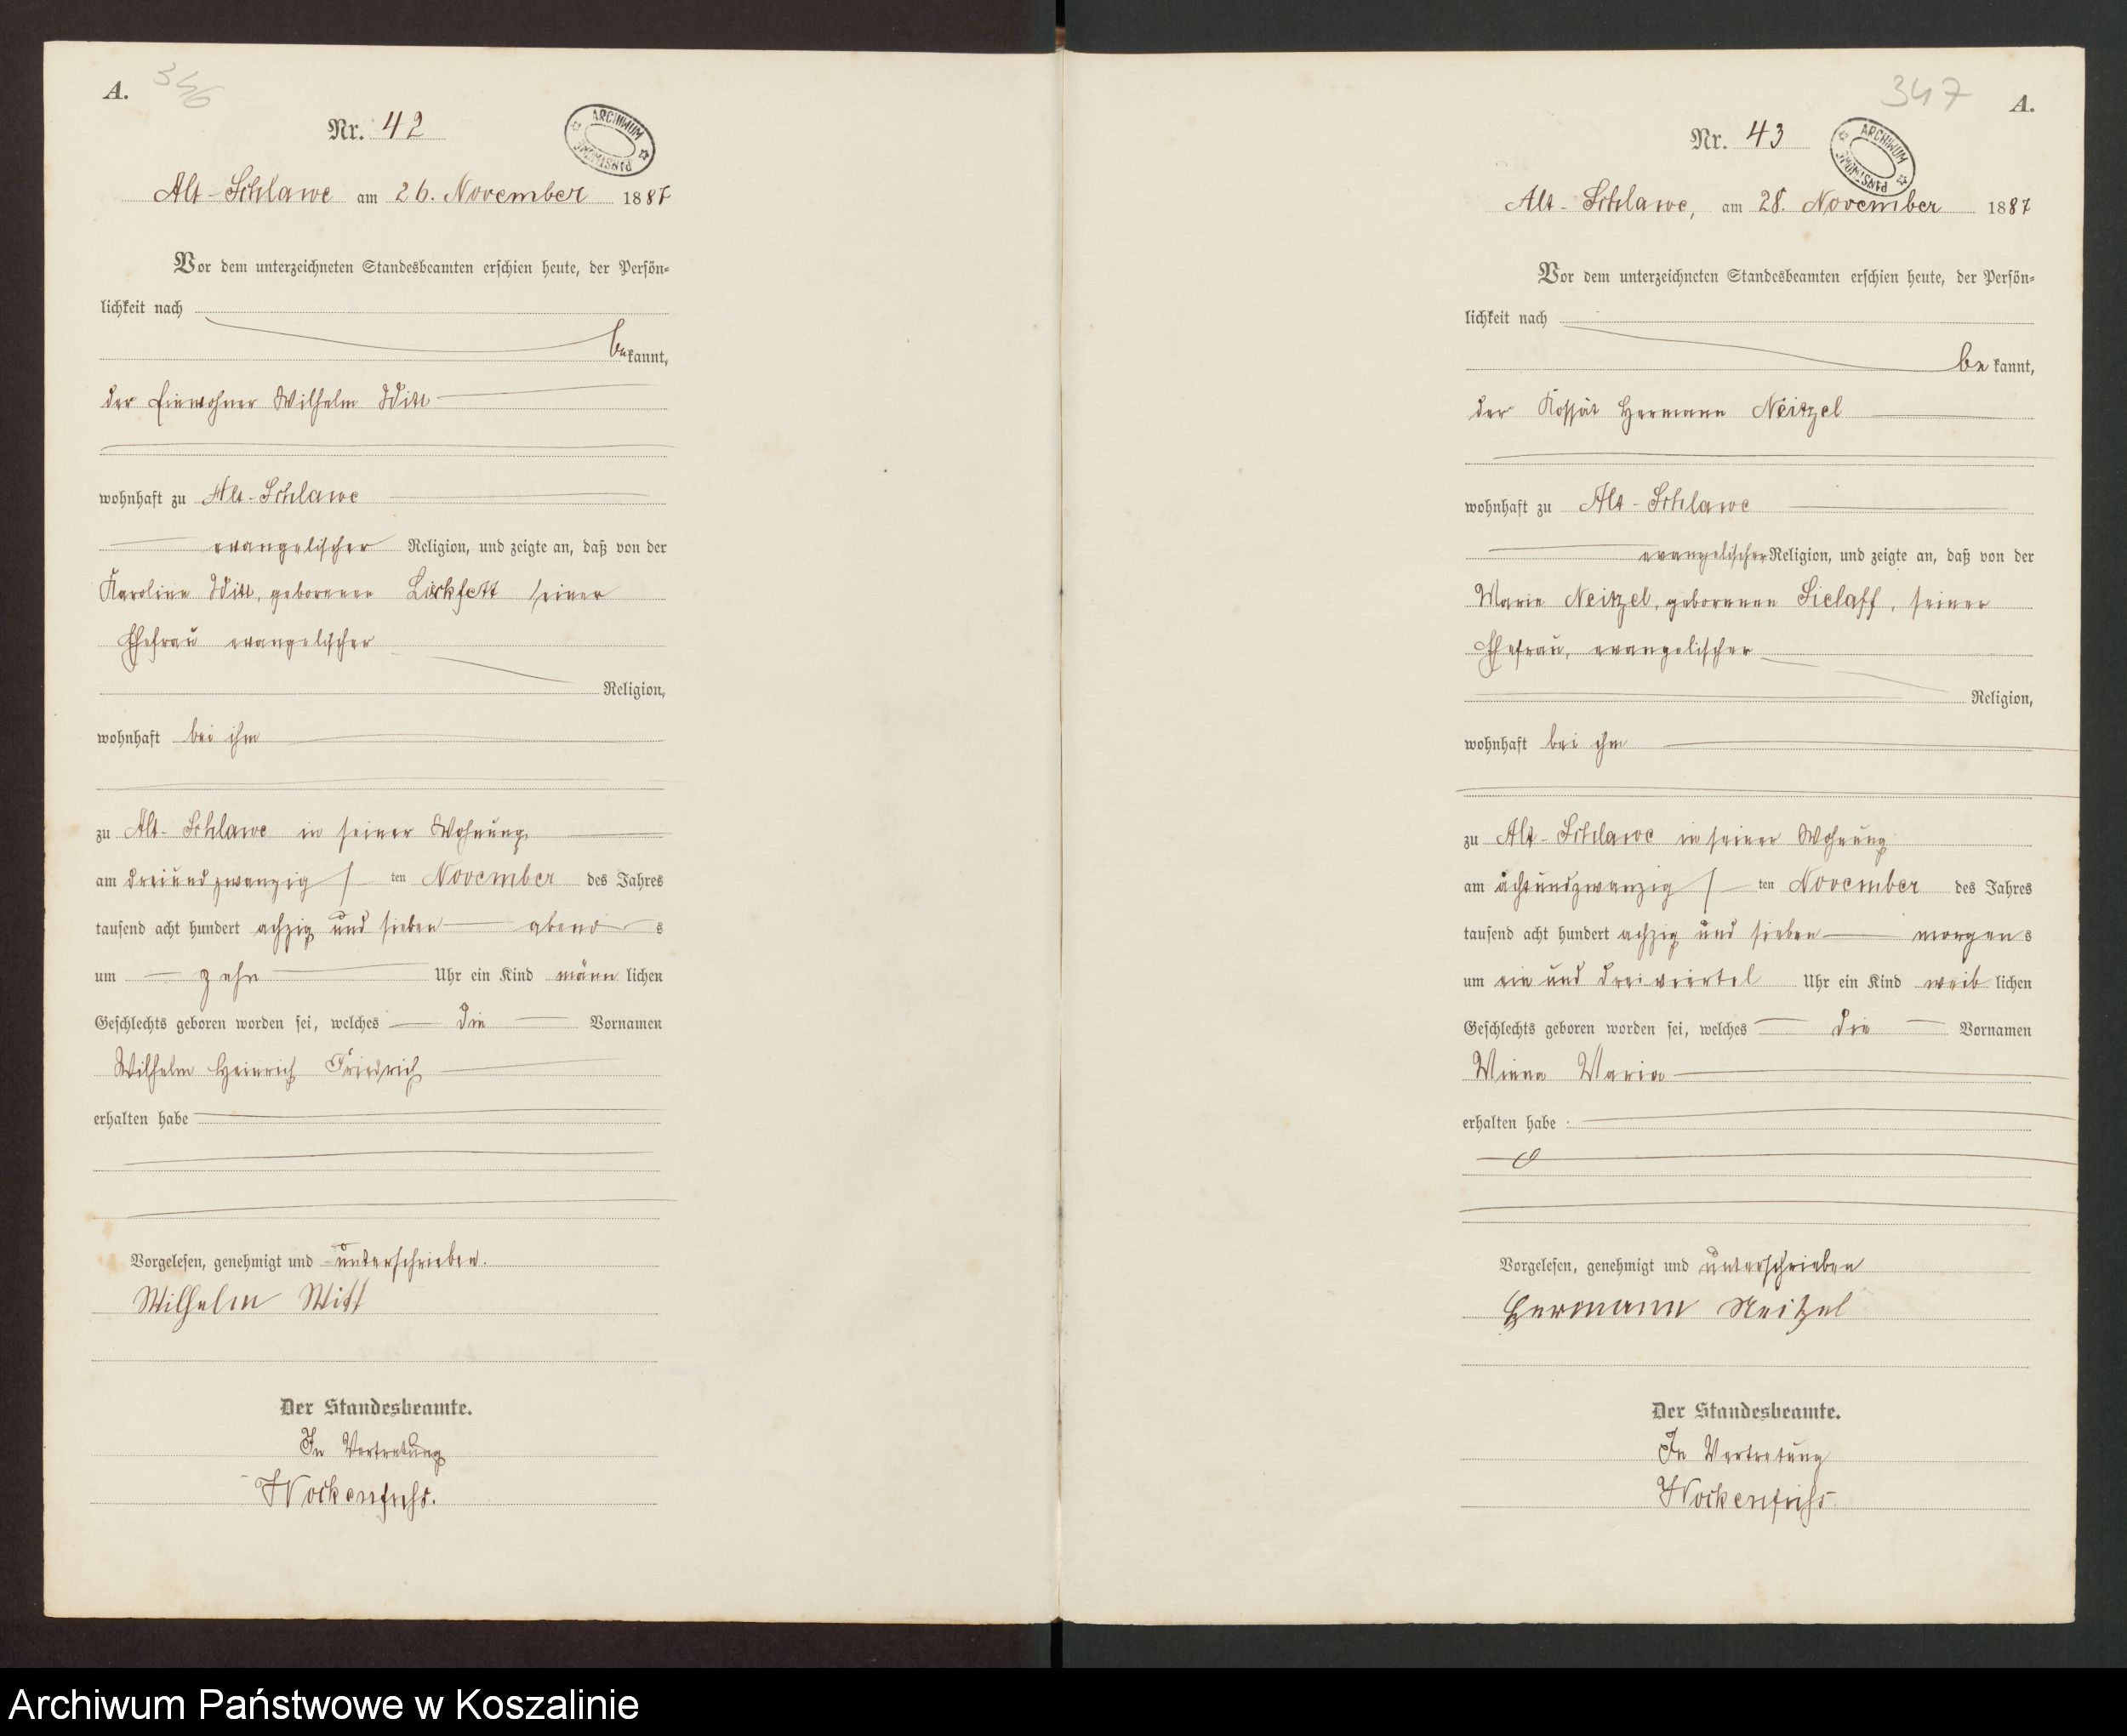 A.
346
Nr. 42
ARCHIWUM PAŃSTWOWE
Alt-Schlawe am 26. November 1887
Vor dem unterzeichneten Standesbeamten erschien heute, der Persön-
lichkeit nach
bekannt,
der Einwohner Wilhelm Witt
wohnhaft zu Alt-Schlawe
evangelischer Religion, und zeigte an, daß von der
Karoline Witt, geborenen seiner
Ehefrau evangelischer
Religion,
wohnhaft bei ihm
zu Alt-Schlawe in seiner Wohnung
am dreiundzwanzig ten November des Jahres
tausend acht hundert achzig und sieben abends
um zehn Uhr ein Kind männlichen
Geschlechts geboren worden sei, welches die Vornamen
Wilhelm Heinrich Friedrich
erhalten habe
Vorgelesen, genehmigt und unterschrieben.
Wilhelm Witt
Der Standesbeamte.
In Vertretung
Wockenfuhs.
347
A.
Nr. 43
ARCHIWUM PAŃSTWOWE
Alt-Schlawe, am 28. November 1887
Vor dem unterzeichneten Standesbeamten erschien heute, der Persön-
lichkeit nach
bekannt,
der Kossät Hermann Neitzel
wohnhaft zu Alt-Schlawe
evangelischer Religion, und zeigte an, daß von der
Marie Neitzel, geborenen Sielaff, seiner
Ehefrau, evangelischer
Religion,
wohnhaft bei ihm
zu Alt-Schlawe in seiner Wohnung
am achtundzwanzig ten November des Jahres
tausend acht hundert achzig und sieben morgens
um ein und dreiviertel Uhr ein Kind weiblichen
Geschlechts geboren worden sei, welches die Vornamen
Minna Maria
erhalten habe
Vorgelesen, genehmigt und unterschrieben
Hermann Neitzel
Der Standesbeamte.
In Vertretung
Wockenfuhs.
Archiwum Państwowe w Koszalinie